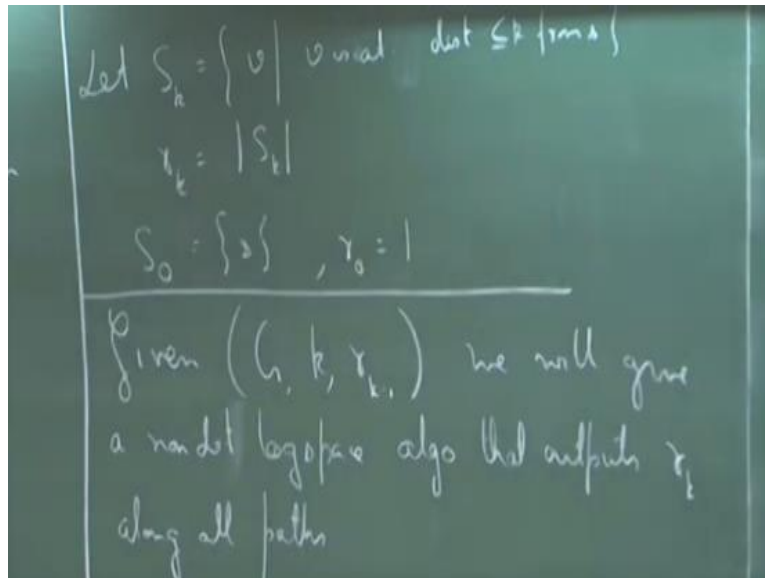 Let S_k = { v | v is at dist ≤ k from s }
r_k = |S_k|
S_0 = {s} , r_0 = 1
Given (G, k, r_{k-1}) we will give
a nondet logspace algo that outputs r_k
along all paths